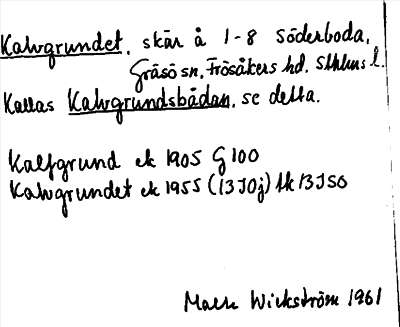 Kalvgrundet, skär å 1-8 Söderboda,
Gräsö sn, Frösåkers hd, Sthlms l.
Kallas Kalvgrundsbådan, se detta.
Kalfgrund ek 1905 G 100
Kalvgrundet ek 1955 (13J0j) tk 13J SO
Wickström 1961